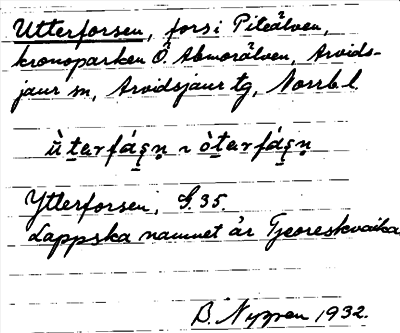 Utterforsen, fors i Piteälven,
kronoparken Ö. Abmorälven, Arvids-
jaur sn, Arvidsjaur tg, Norrb. l.
ùt̲ərfás̲n̥ ~ òt̲ərfás̲n̥
Ytterforsen, G. 35.
Lappska namnet är Tjeoreskvaika
B. Nyren 1932.